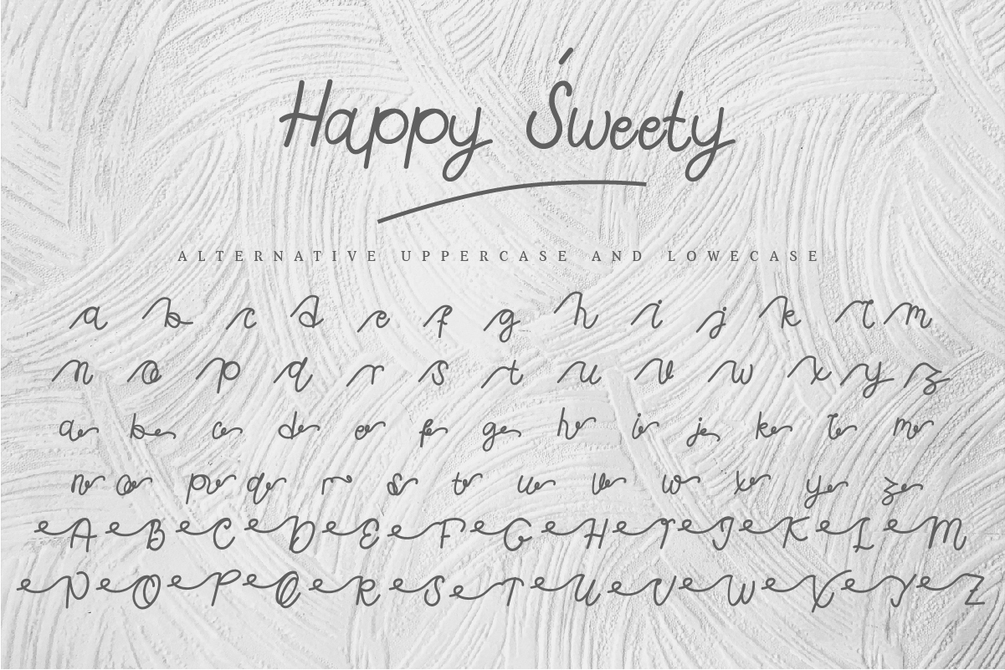 Happy Śweety
ALTERNATIVE UPPERCASE AND LOWECASE
a b c d e f g h i j k l m
n o p q r s t u v w x y z
a b c d e f g h i j k l m
n o p q r s t u v w x y z
A B C D E F G H I J K L M
N O P Q R S T U V W X Y Z